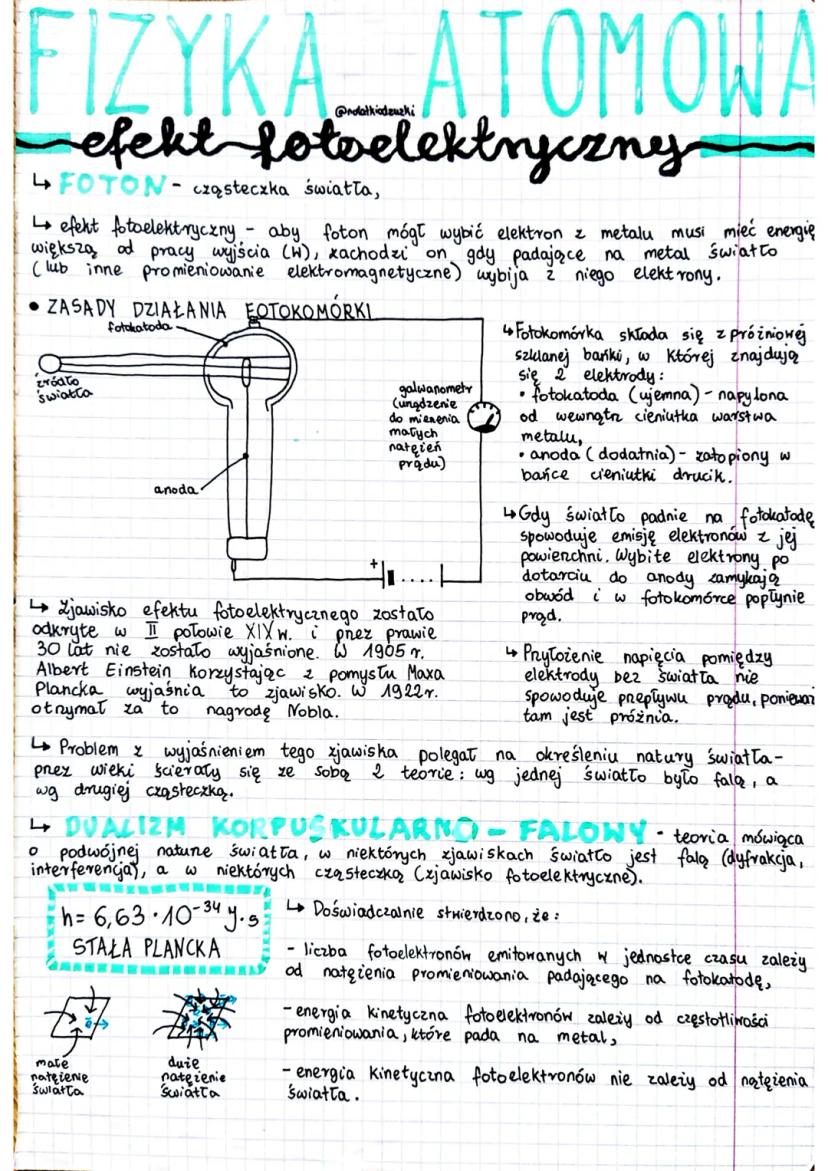 FIZYKA ATOMOWA
@notatkiodzuzki
efekt fotoelektryczny
↳ FOTON - cząsteczka światła,
↳ efekt fotoelektryczny - aby foton mógł wybić elektron z metalu musi mieć energię
większą od pracy wyjścia (W), zachodzi on gdy padające na metal światło
(lub inne promieniowanie elektromagnetyczne) wybija z niego elektrony.
• ZASADY DZIAŁANIA FOTOKOMÓRKI
fotokatoda
źródło
światła
anoda
galwanometr
(urządzenie
do mierzenia
małych
natężeń
prądu)
+
↳ Fotokomórka składa się z próżniowej
szklanej bańki, w której znajdują
się 2 elektrody:
• fotokatoda (ujemna) - napylona
od wewnątrz cieniutka warstwa
metalu,
• anoda (dodatnia) - zatopiony w
bańce cieniutki drucik.
↳ Gdy światło padnie na fotokatodę
spowoduje emisję elektronów z jej
powierzchni. Wybite elektrony po
dotarciu do anody zamykają
obwód i w fotokomórce popłynie
prąd.
↳ Przyłożenie napięcia pomiędzy
elektrody bez światła nie
spowoduje przepływu prądu, ponieważ
tam jest próżnia.
↳ Zjawisko efektu fotoelektrycznego zostało
odkryte w II połowie XIX w. i przez prawie
30 lat nie zostało wyjaśnione. W 1905 r.
Albert Einstein korzystając z pomysłu Maxa
Plancka wyjaśnia to zjawisko. W 1922r.
otrzymał za to nagrodę Nobla.
↳ Problem z wyjaśnieniem tego zjawiska polegał na określeniu natury światła-
przez wieki ścierały się ze sobą 2 teorie: wg jednej światło było falą, a
wg drugiej cząsteczką.
↳ DUALIZM KORPUSKULARNO - FALOWY - teoria mówiąca
o podwójnej naturze światła, w niektórych zjawiskach światło jest falą (dyfrakcja,
interferencja), a w niektórych cząsteczką (zjawisko fotoelektryczne).
h = 6,63 · 10⁻³⁴ J·s
STAŁA PLANCKA
↳ Doświadczalnie stwierdzono, że:
- liczba fotoelektronów emitowanych w jednostce czasu zależy
od natężenia promieniowania padającego na fotokatodę,
- energia kinetyczna fotoelektronów zależy od częstotliwości
promieniowania, które pada na metal,
- energia kinetyczna fotoelektronów nie zależy od natężenia
światła.
małe
natężenie
światła
duże
natężenie
światła